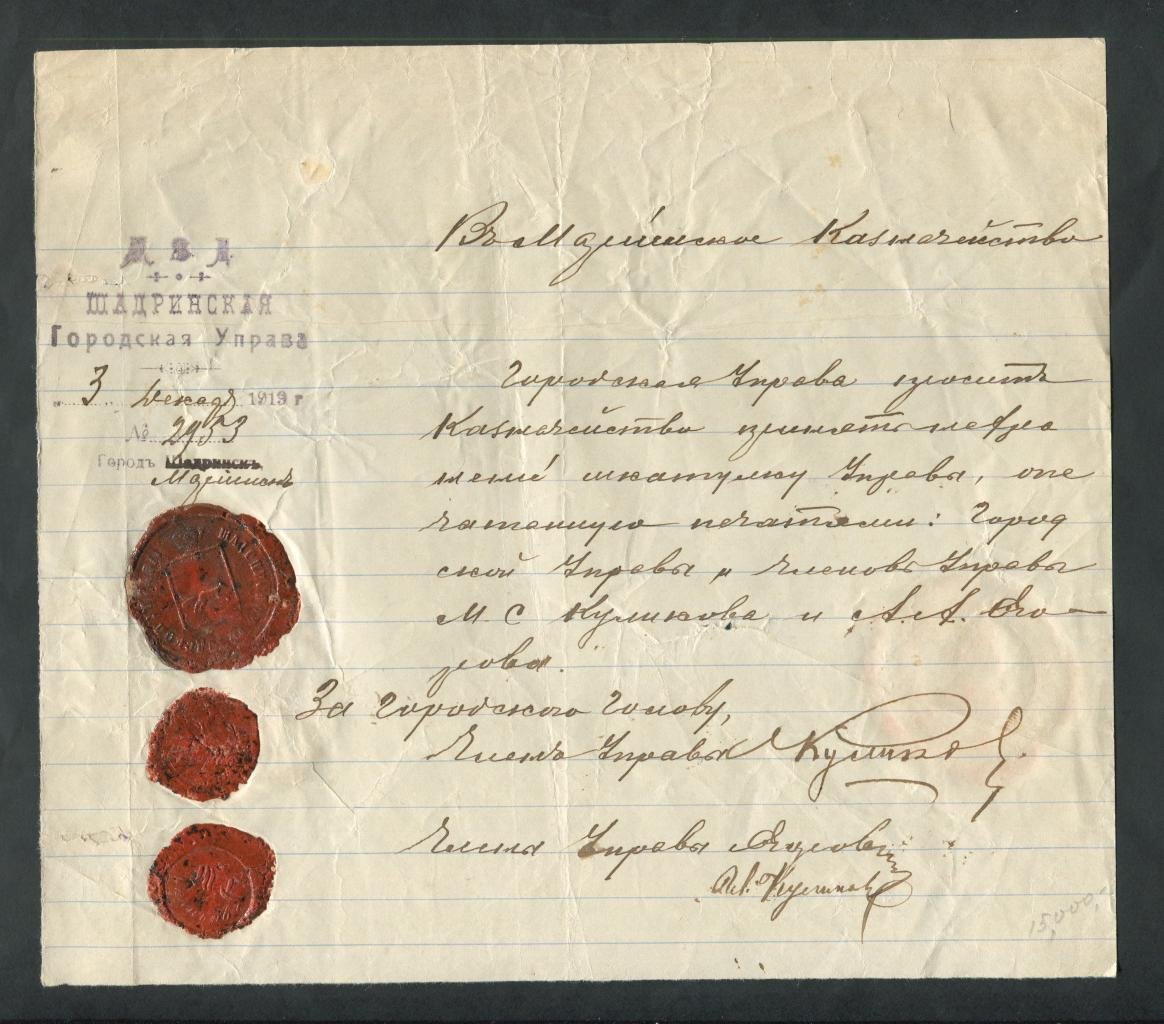 М В Д
ШАДРИНСКАЯ
Городская Управа
" 3 " Декаб 1919 г
№ 2953
Городъ Шадринскъ
Въ Казначейство
Городская Управа проситъ
Казначейство принять на хра
неніе шкатулку Управы, опе
чатанную печатями: Город
ской Управы и Членовъ Управы
М. С Куликова и А. А. Его-
рова.
За Городского Голову,
Членъ Управы Куликов
Члены Управы Егоров
Куликов
15,000,